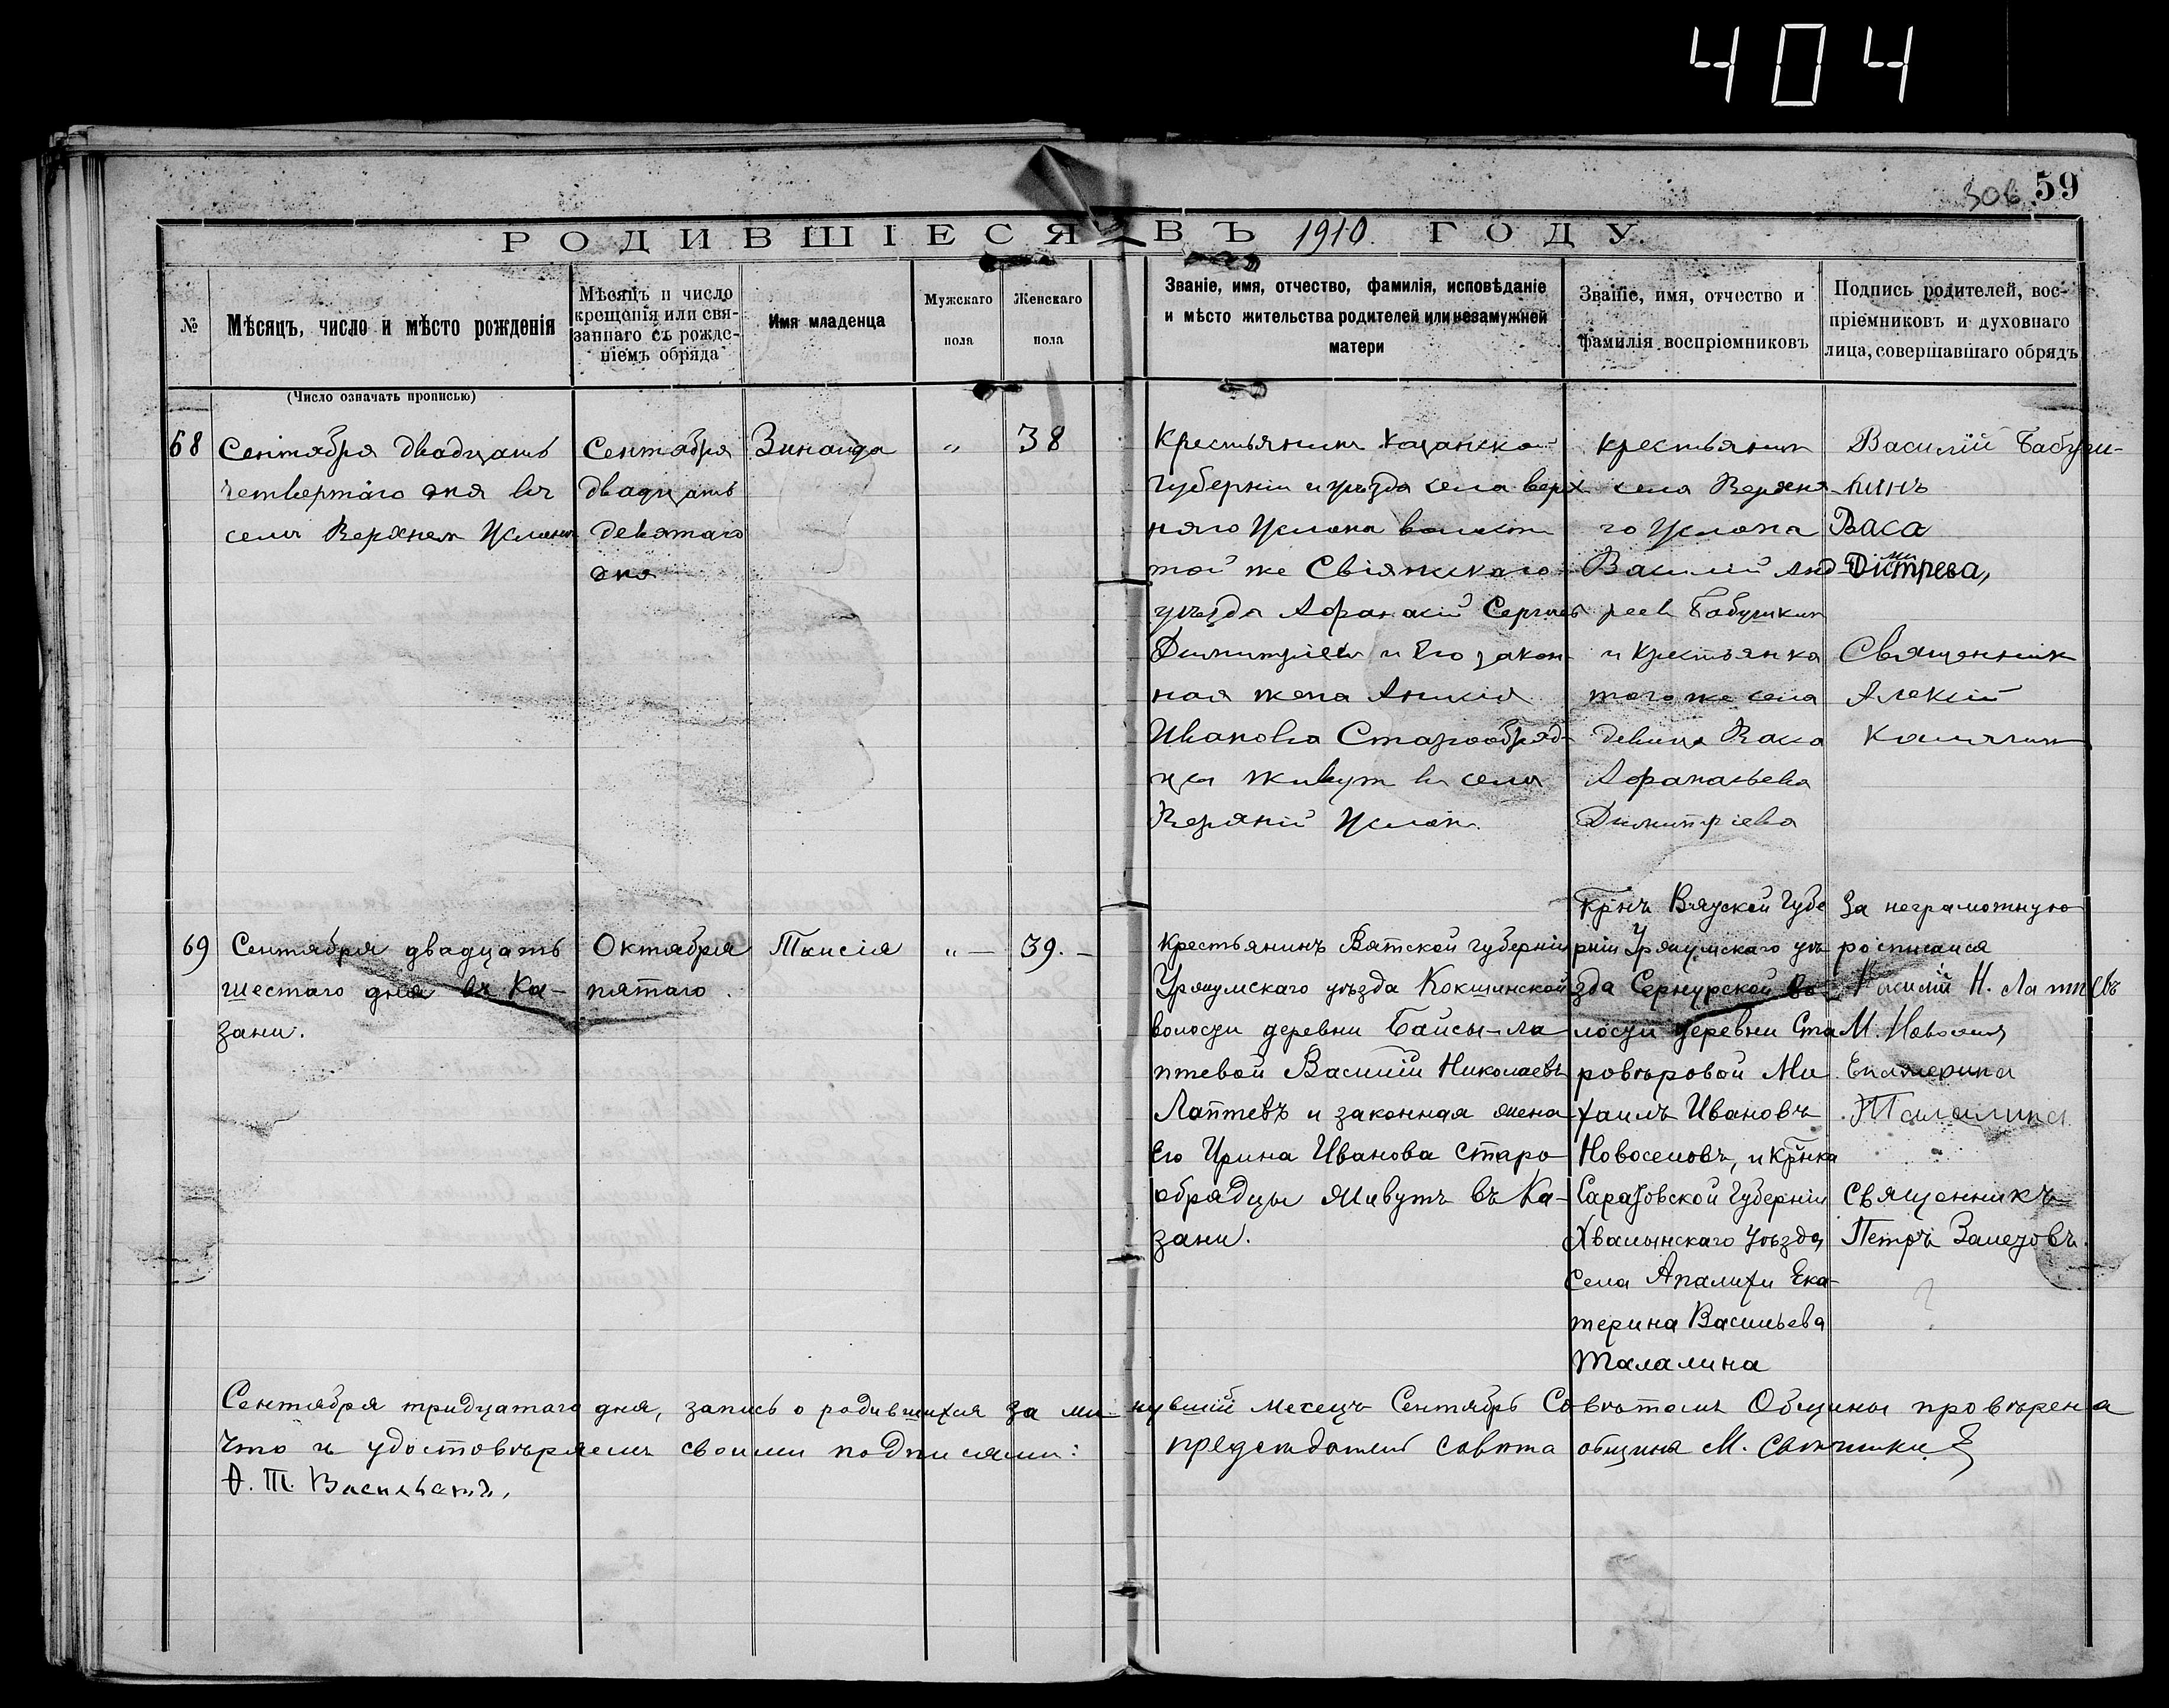 404
306. 59
РОДИВШІЕСЯ ВЪ 1910. ГОДУ.
№
Мѣсяцъ, число и мѣсто рожденія
Мѣсяцъ и число
крещенія или свя-
заннаго съ рожде-
ніемъ обряда
Имя младенца
Мужскаго
пола
Женскаго
пола
Званіе, имя, отчество, фамилія, исповѣданіе
и мѣсто жительства родителей или незамужней
матери
Званіе, имя, отчество и
фамилія воспріемниковъ
Подпись родителей, вос-
пріемниковъ и духовнаго
лица, совершавшаго обрядъ
(Число означать прописью)
68
Сентября двадцать
четвертаго дня въ
селѣ Верхнем Услонѣ
Сентября
двадцать
девятаго
дня
Зинаида
"
38
Крестьянин Казанской
Губерніи и уѣзда села верх
няго Услона волости
той же Свіяжскаго
уѣзда Афанасій Сергѣев
Димитріев и Его закон
ная жена Анисия
Иванова Старообряд-
цы живут въ селѣ
Верхній Услон.
крестьянин
села Верхня
го Услона
Василій Анд
реев Бабушкин
и Крестьянка
того же села
девица Васа
Афанасьева
Димитріева
Василій Бабуш-
кинъ
Васа
Дмистрева,
Священник
Алексій
Калягин
69
Сентября двадцать
шестаго дня въ Ка-
зани.
Октября
пятаго.
Таисія
" —
39. —
Крестьянинъ Вятской губерніи
Уржумскаго уѣзда Кокшинской
волости деревни Байсы-ла
птевой Василій Николаевъ
Лаптевъ и законная жена
Его Ирина Иванова Старо
обрядцы живутъ въ Ка-
зани.
Крнъ Вятской Губе
рніи Уржумскаго уѣ
зда Сернурской во
лости деревни Ста
ровѣровой Ми
хаилъ Ивановъ
Новоселовъ, и Крнка
Саратовской Губерніи
Хвалынскаго Уѣзда,
Села Апалихи Ека-
терина Васильева
Талалина
За неграмотную
росписался
Василій Н. Лаптевъ
М. Новоселв
Екатерина
Талалина
Священникъ
Петръ Залетовъ.
Сентября тридцатаго дня, запись о родившихся за ми нувшій месецъ Сентябрь Совѣтомъ Общины провѣрена
Что и удостовѣряемъ своими подписями: председатель совѣта общины М.
Ѳ. Т. Васильевъ,